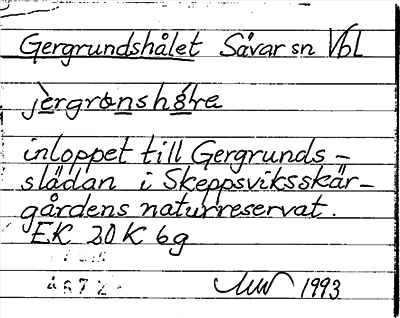 Gergrundshålet Sävar sn Vbl
jèrgrònshó̱lre
inloppet till Gergrunds-
slädan i Skeppsviksskär-
gårdens naturreservat.
EK 20K 6g
4672
1993